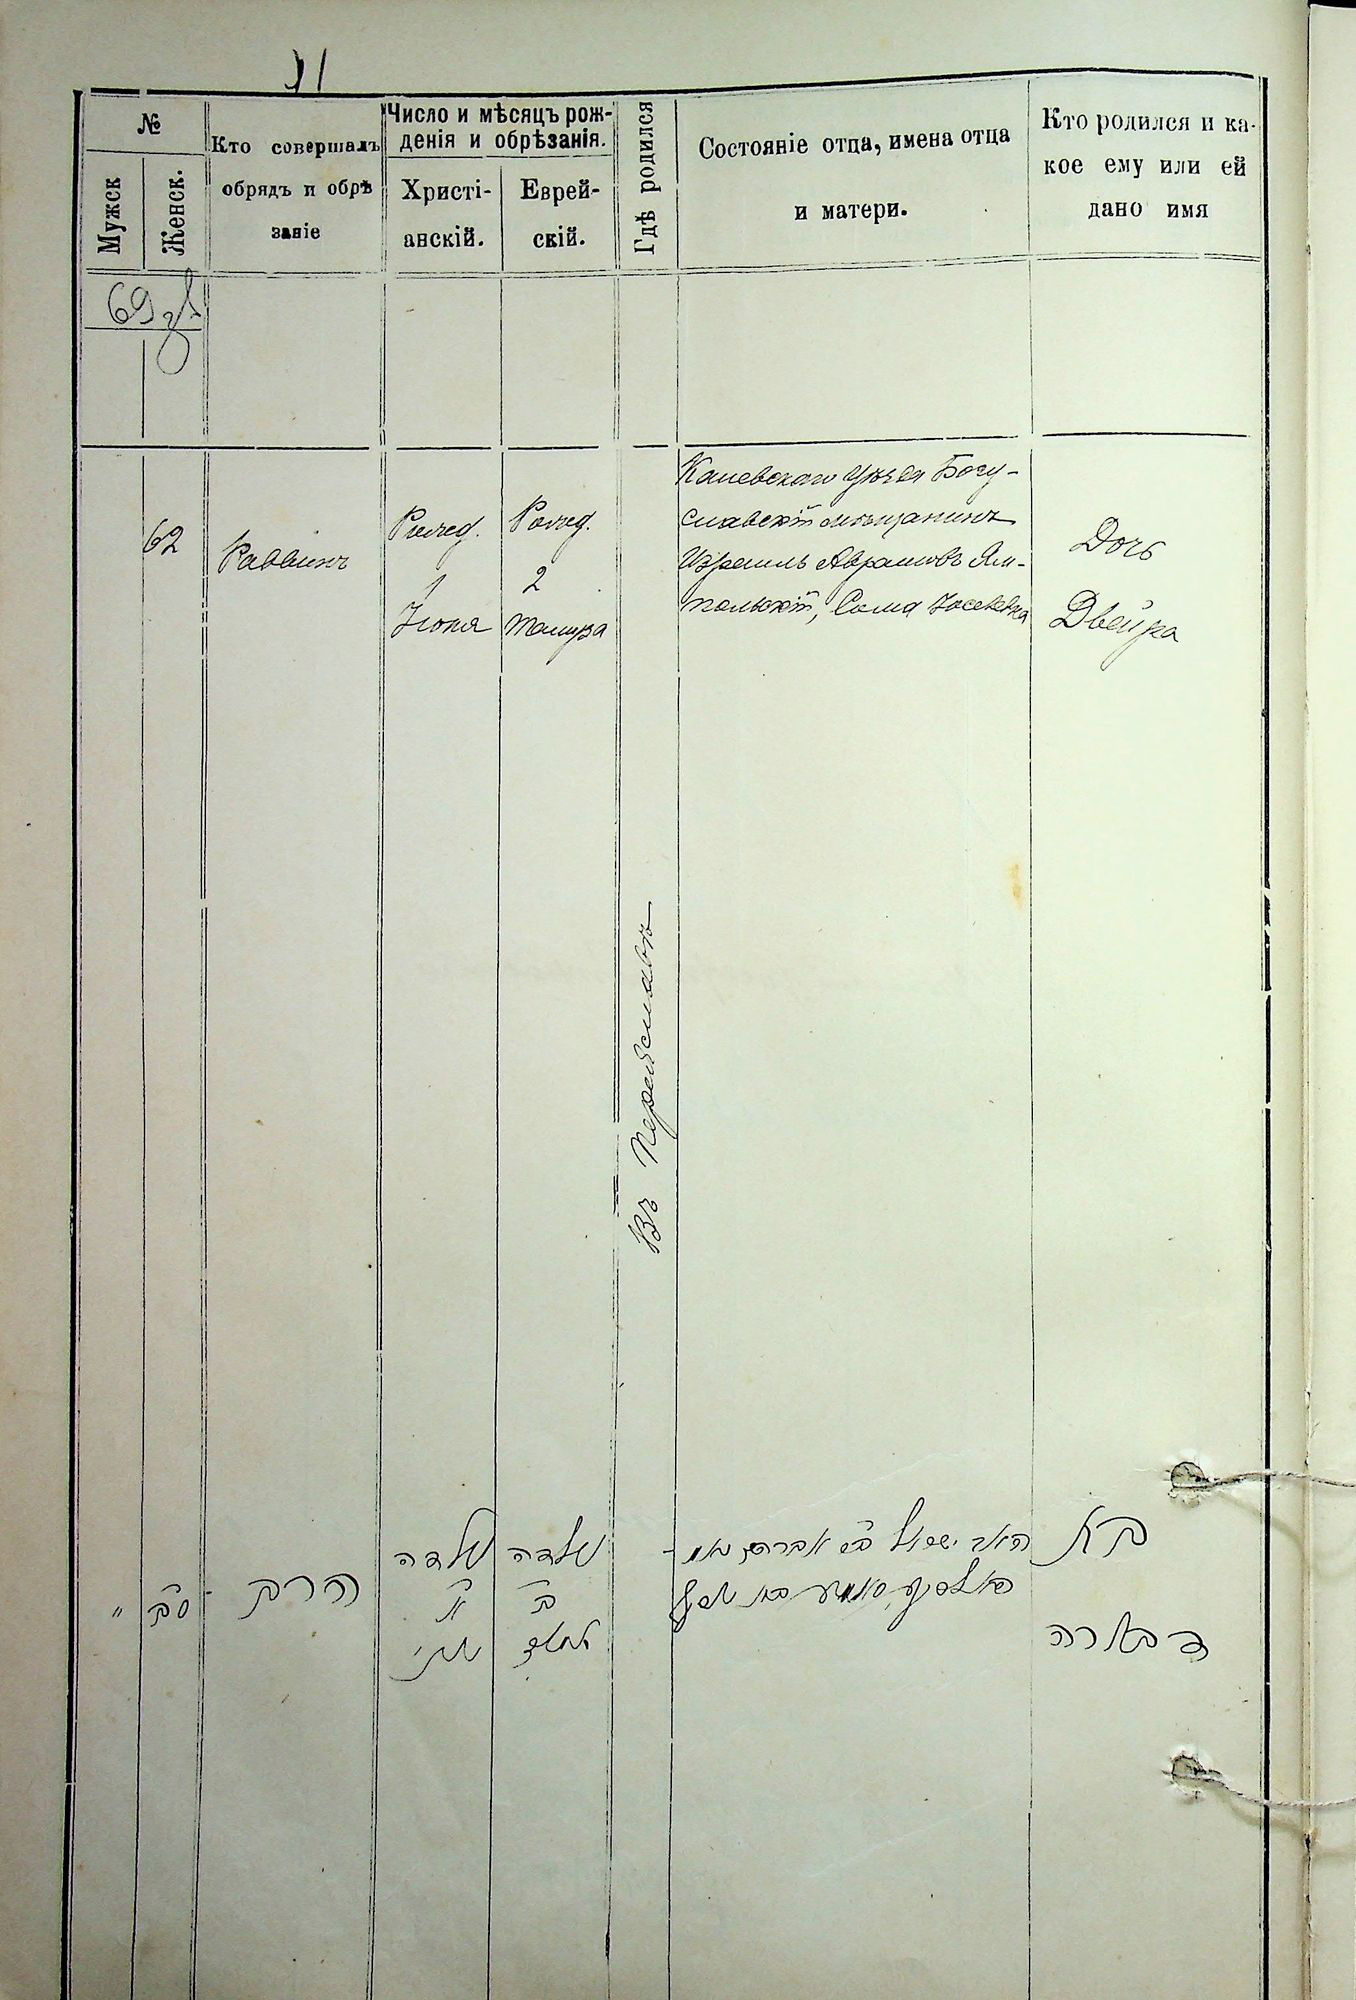 №
Мужск
Женск.
Кто совершалъ
обрядъ и обрѣ
заніе
Число и мѣсяцъ рож-
денія и обрѣзанія.
Христі-
анскій.
Еврей-
скій.
Гдѣ родился
Состояніе отца, имена отца
и матери.
Кто родился и ка-
кое ему или ей
дано имя
69
62
Раввинъ
Рожд.
1
Іюня
Рожд.
2
Тамуза
Въ Переяславѣ
Каневскаго уѣзда Богу-
славскій мѣщанинъ
Израиль Аврамовъ Ям-
польскій, Сома Іосевовна
Дочь
Двейра
"
סב
הרב
נולדה
א
יוני
נולדה
ב
תמוז
האב ישראל בן אברהם
בת
דבורה